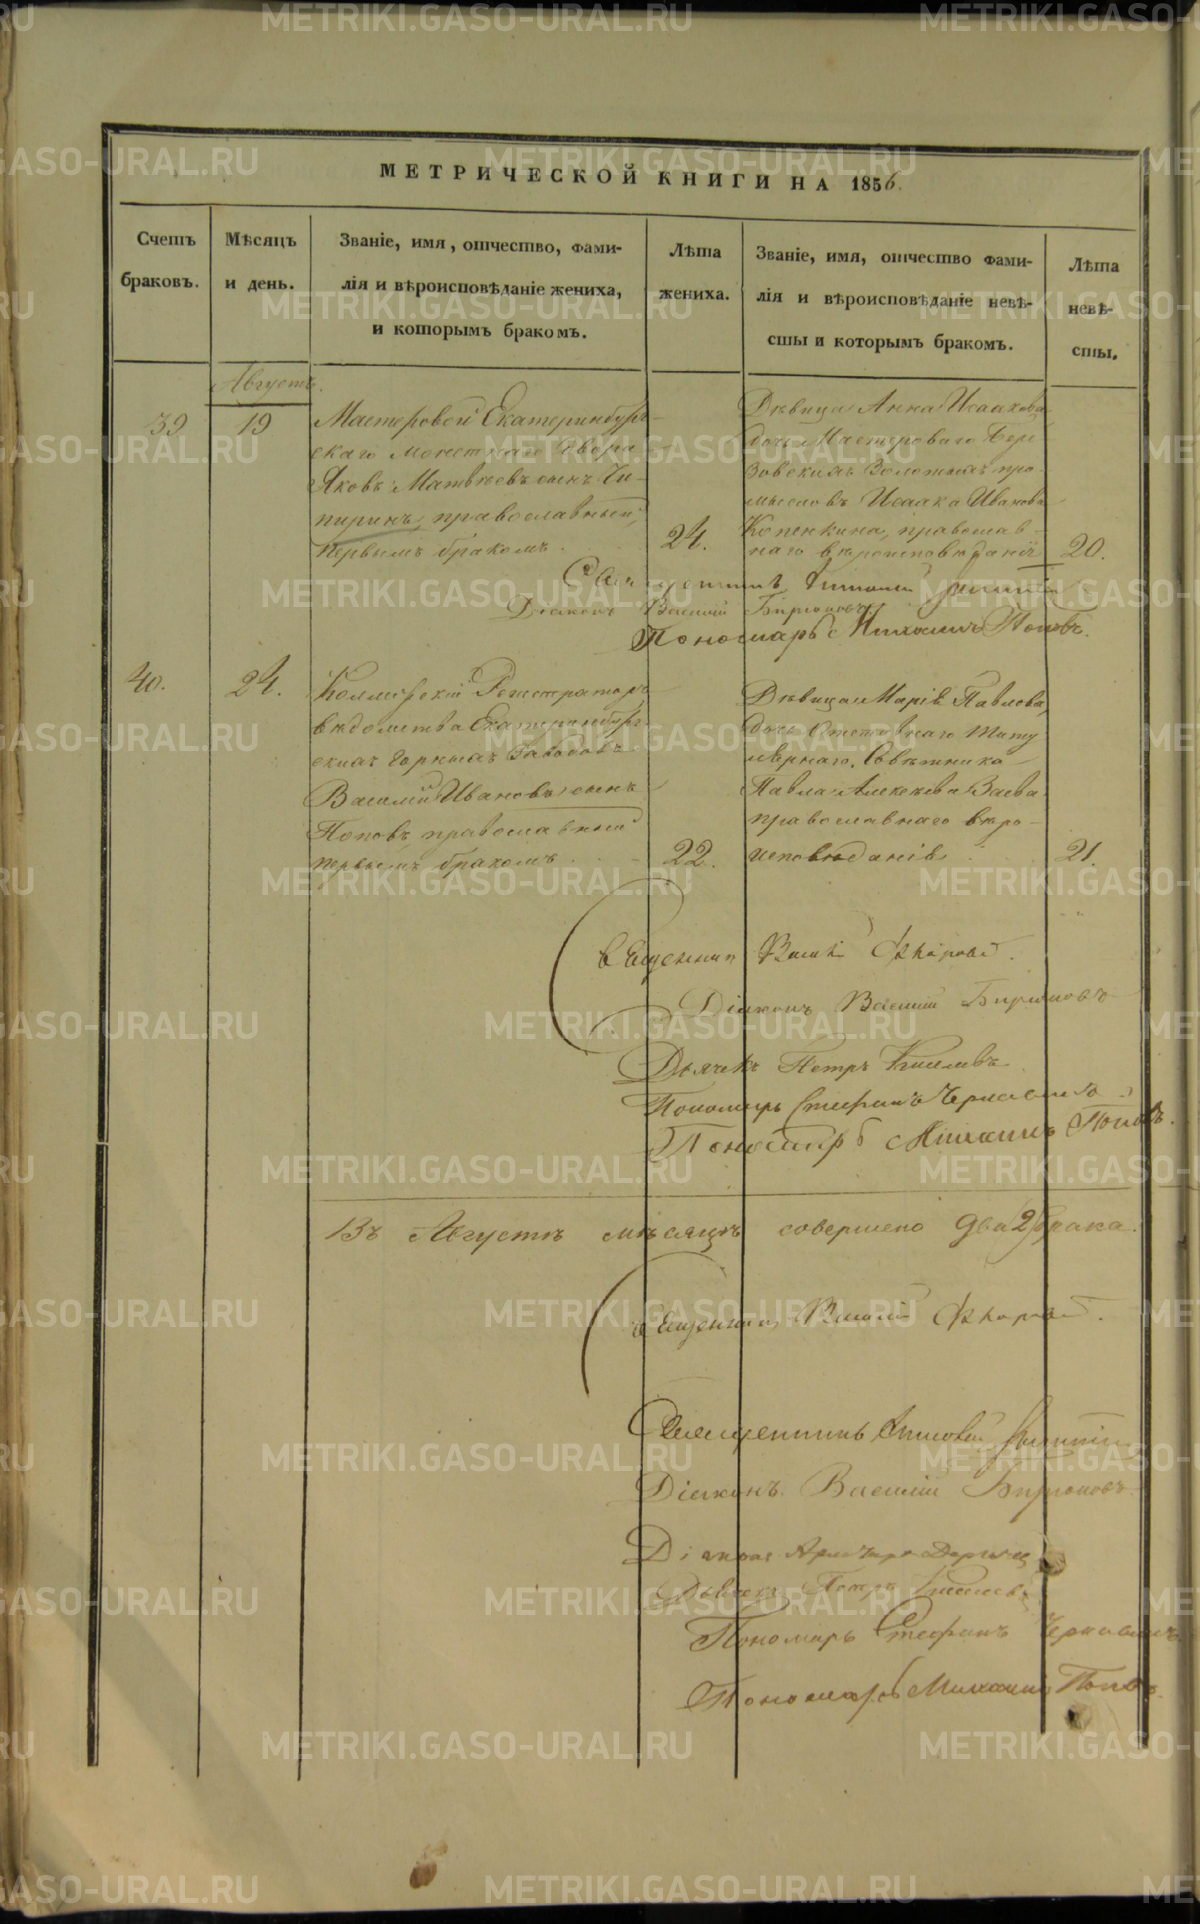 МЕТРИЧЕСКОЙ КНИГИ НА 1856.
Счетъ браковъ.
Мѣсяцъ и день.
Званіе, имя, отчество, фами-
лія и вѣроисповѣданіе жениха,
и которымъ бракомъ.
Лѣта жениха.
Званіе, имя, отчество фами-
лія и вѣроисповѣданіе невѣ-
сты и которымъ бракомъ.
Лѣта невѣ-
сты.
Августъ.
39
19
Мастеровой Екатеринбург-
скаго Монетнаго Двора
Яковъ Матвѣевъ сынъ Чи-
пиринъ, православный,
первымъ бракомъ.
24.
Дѣвица Анна Исаакова,
дочь Мастероваго Бере-
зовскихъ Золотыхъ про-
мысловъ Исаака Иванова
Копенкина, православ-
наго вѣроисповѣданія
20.
Священникъ
Діаконъ Василій Бирюковъ
Пономарь Михаилъ Поповъ.
40.
24.
Коллежскій Регистраторъ
вѣдомства Екатеринбург-
скихъ Горныхъ Заводовъ
Василій Ивановъ сынъ
Поповъ, православный
первымъ бракомъ
22.
Дѣвица Марія Павлова,
дочь Отставнаго Титу
лярнаго Совѣтника
Павла Алексѣева Заева
православнаго вѣро-
исповѣданія
21.
Священник Василій
Діаконъ Василій Бирюковъ
Дьячекъ Петръ Киселевъ
Пономарь Стефанъ Чернавинъ
Пономарь Михаилъ Поповъ.
Въ Августѣ мѣсяцѣ совершено два 2 брака.
Священник Василій
Священникъ
Діаконъ Василій Бирюковъ
Діаконъ
Дьячекъ Петръ Киселевъ
Пономарь Стефанъ Чернавинъ
Пономарь Михаилъ Поповъ.
METRIKI.GASO-URAL.RU